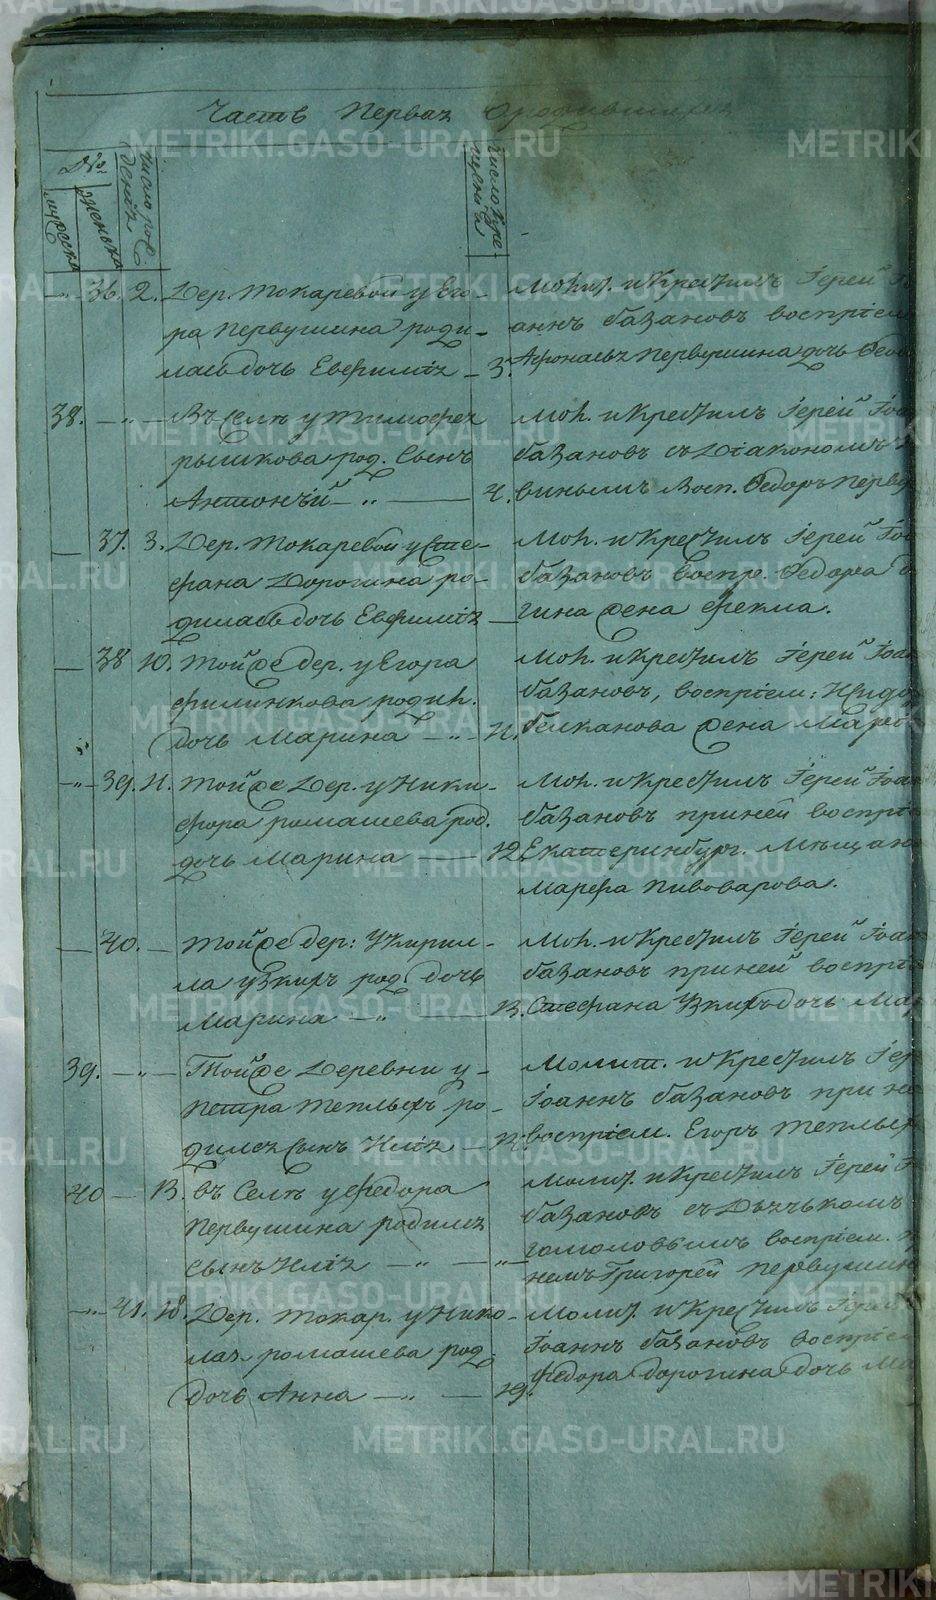 Часть Первая о родившихся
№
мужеска
женька
число рождения
число крещения
36. 2. Дер. Токаревой у Его-
ра Первушина роди-
лась дочь Евфимiя
Мол. и Крестилъ Iерей
аннъ базановъ воспрiем
3. Афонасья Первушина дочь
38. Въ Селе у Тимофея
рышкова род. Сынъ
Антонiй
Мол. и Крестилъ Iерей Iоан
базановъ съ Дiакономъ
4. Восп. Федоръ Перву
37. 3. Дер. Токаревой у Сте-
фана Дорогина ро-
дилась дочь Евфимiя
Мол. и Крестилъ Iерей Iоа
базановъ воспр. Федора
гина жена Фекла.
38 10. Той же дер. у Егора
филинкова родил.
дочь Марина
Мол. и Крестилъ Iерей Iоан
базановъ, воспрiем:
11. белканова жена
39. 11. Той же Дер. у Ники-
фора ромашева род.
дочь Марина
Мол. и Крестилъ Iерей Iоан
базановъ при ней воспрiе
12. Екатеринбург. Мещан
Марфа Пивоварова.
40. Той же дер: У Кирил-
ла узкихъ род. дочь
Марина
Мол. и Крестилъ Iерей Iоан
базановъ при ней воспрiе
13. Стефана Узкихъ дочь Мар
39. Той же Деревни у
Петра теплыхъ ро-
дился Сынъ Илiя
Молит. и Крестилъ Iер
Iоаннъ базановъ при не
воспрiем. Егоръ теплых
40 13. въ Селе у Федора
Первушина родился
Сынъ Илiя
Молит. и Крестилъ Iерей
базановъ съ Дьячькомъ
гомоловымъ воспрiем.
немъ Григорей Первушин
41. 18. Дер. Токар. у Нико-
лая ромашева род.
дочь Анна
Молит. и Крестилъ Iерей
Iоаннъ базановъ воспрiем
19. Федора дорогина дочь
METRIKI.GASO-URAL.RU